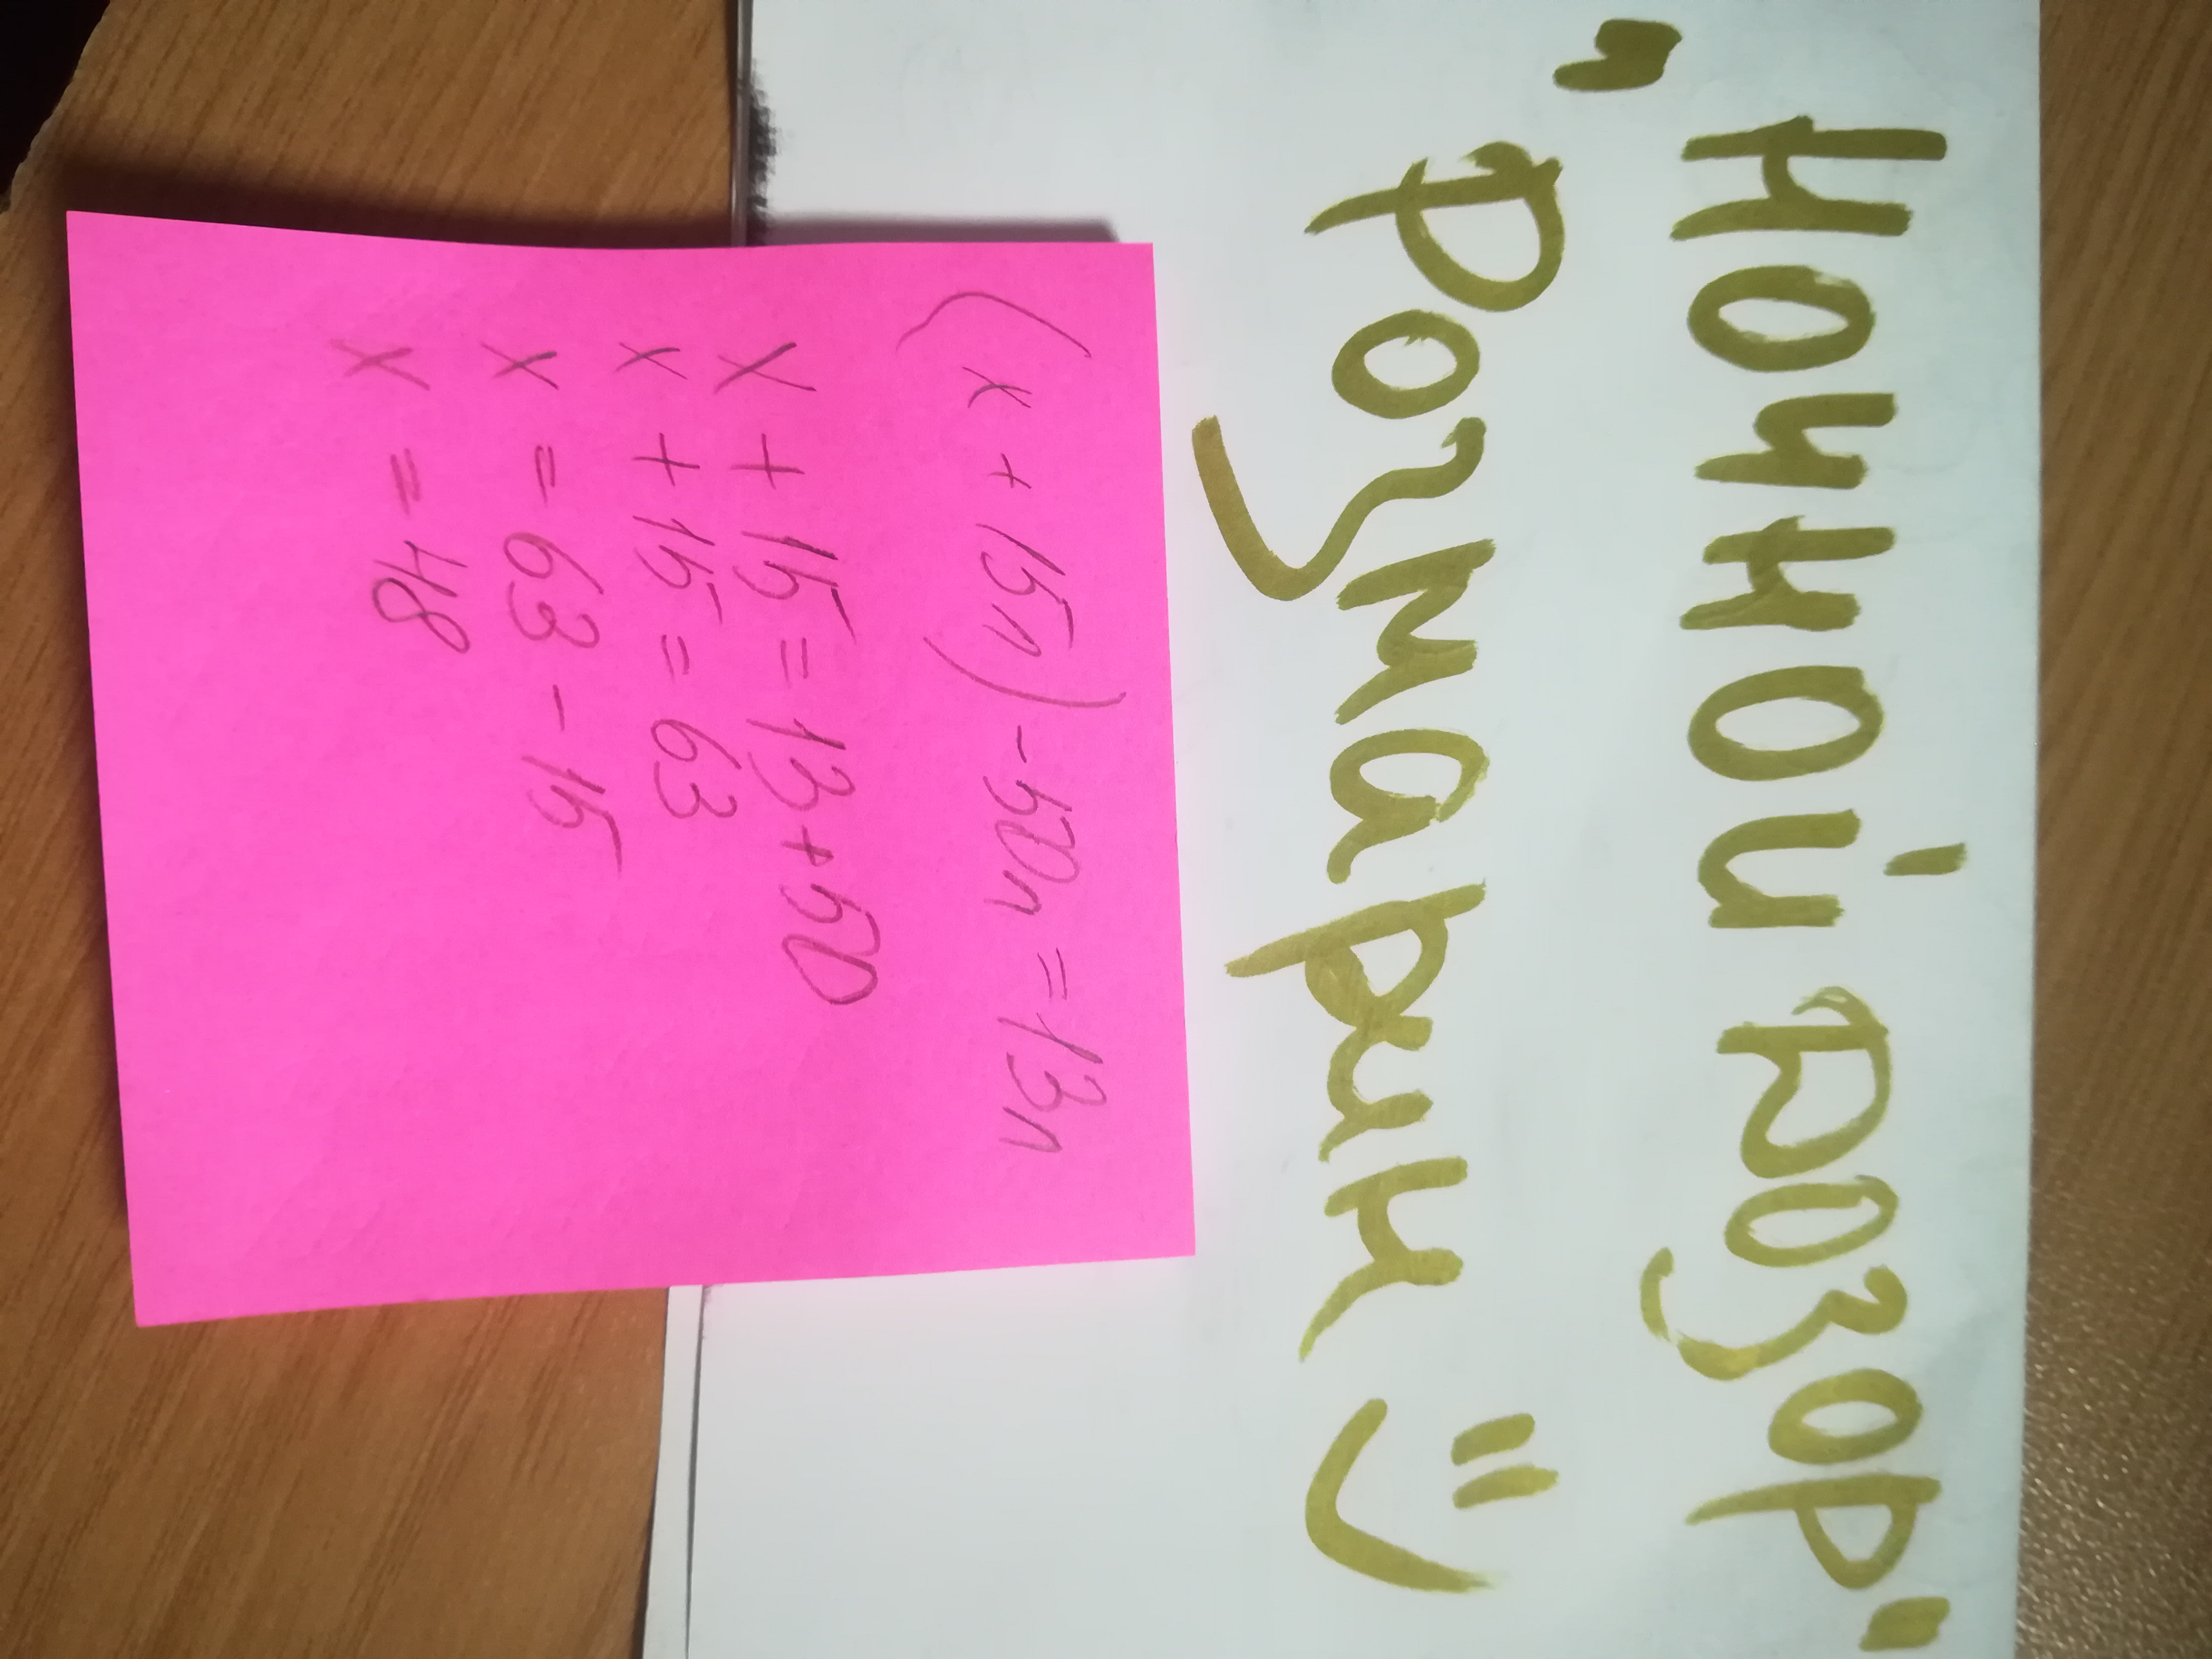 „Ночной розор"
Розмарин :)
(x + 15л) - 50л = 13л
x + 15 = 13 + 50
x + 15 = 63
x = 63 - 15
x = 48